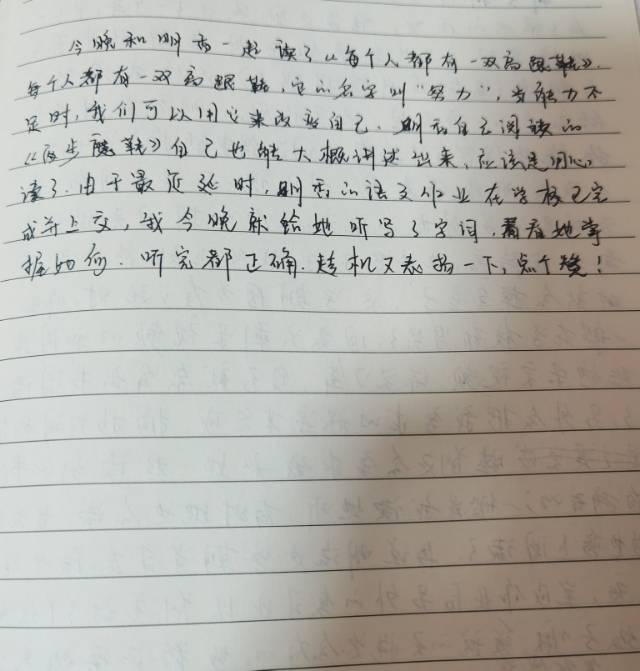 今晚和明香一起读了《每个人都有一双高跟鞋》.
每个人都有一双高跟鞋,它的名字叫"努力",当能力不
足时,我们可以用它来改变自己.明香自己阅读的
《
自己也能大概讲述出来,应该是用心
读了.由于最近延时,明香的语文作业在学校已完
成并上交,我今晚就给她听写了字词,看看她掌
握如何.听完都正确.趁机又表扬一下,点个赞!